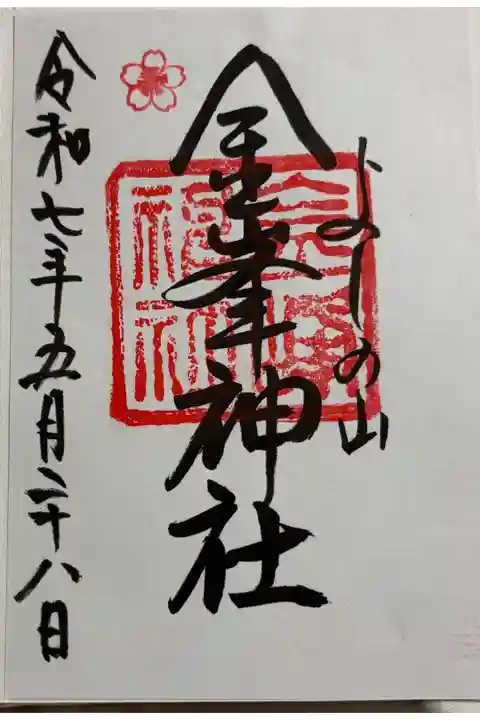 よしの山
金峯神社
令和七年五月二十八日
金峯神社